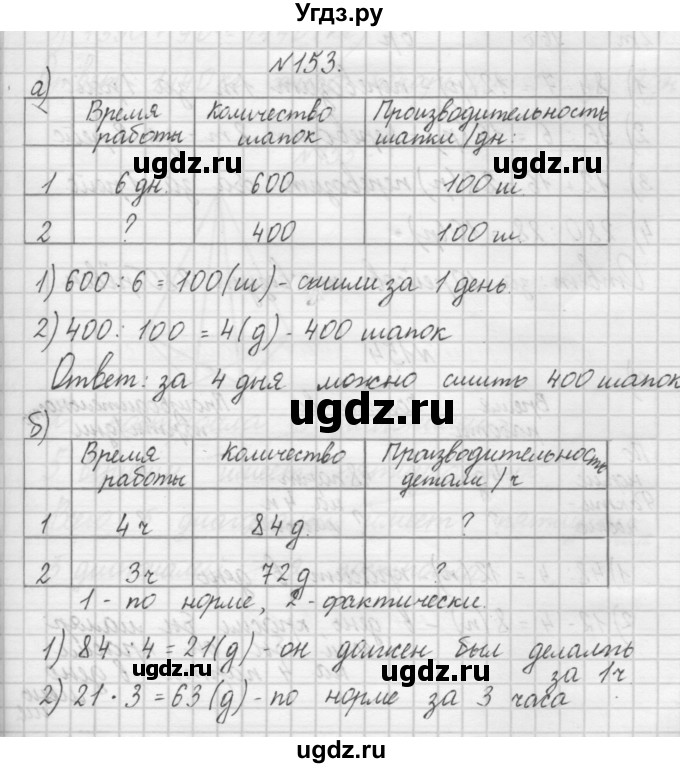 Угдз.ру
№153.
а)
Время работы Количество шапок Производительность шапки/дн:
ugdz.ru ugdz.ru
1 6 дн. 600 100 ш.
2 ? 400 100 ш.
1) 600 : 6 = 100 (ш) - сшили за 1 день.
2) 400 : 100 = 4 (д) - 400 шапок
Ответ: за 4 дня можно сшить 400 шапок
ugdz.ru
б)
Время работы Количество Производительность детали/ч
1 4ч 84 д. ?
2 3ч 72 д ?
1 - по норме, 2 - фактически.
1) 84 : 4 = 21 (д) - он должен был делать
за 1ч
ugdz.ru ugdz.ru
2) 21 · 3 = 63 (д) - по норме за 3 часа
ugdz.ru